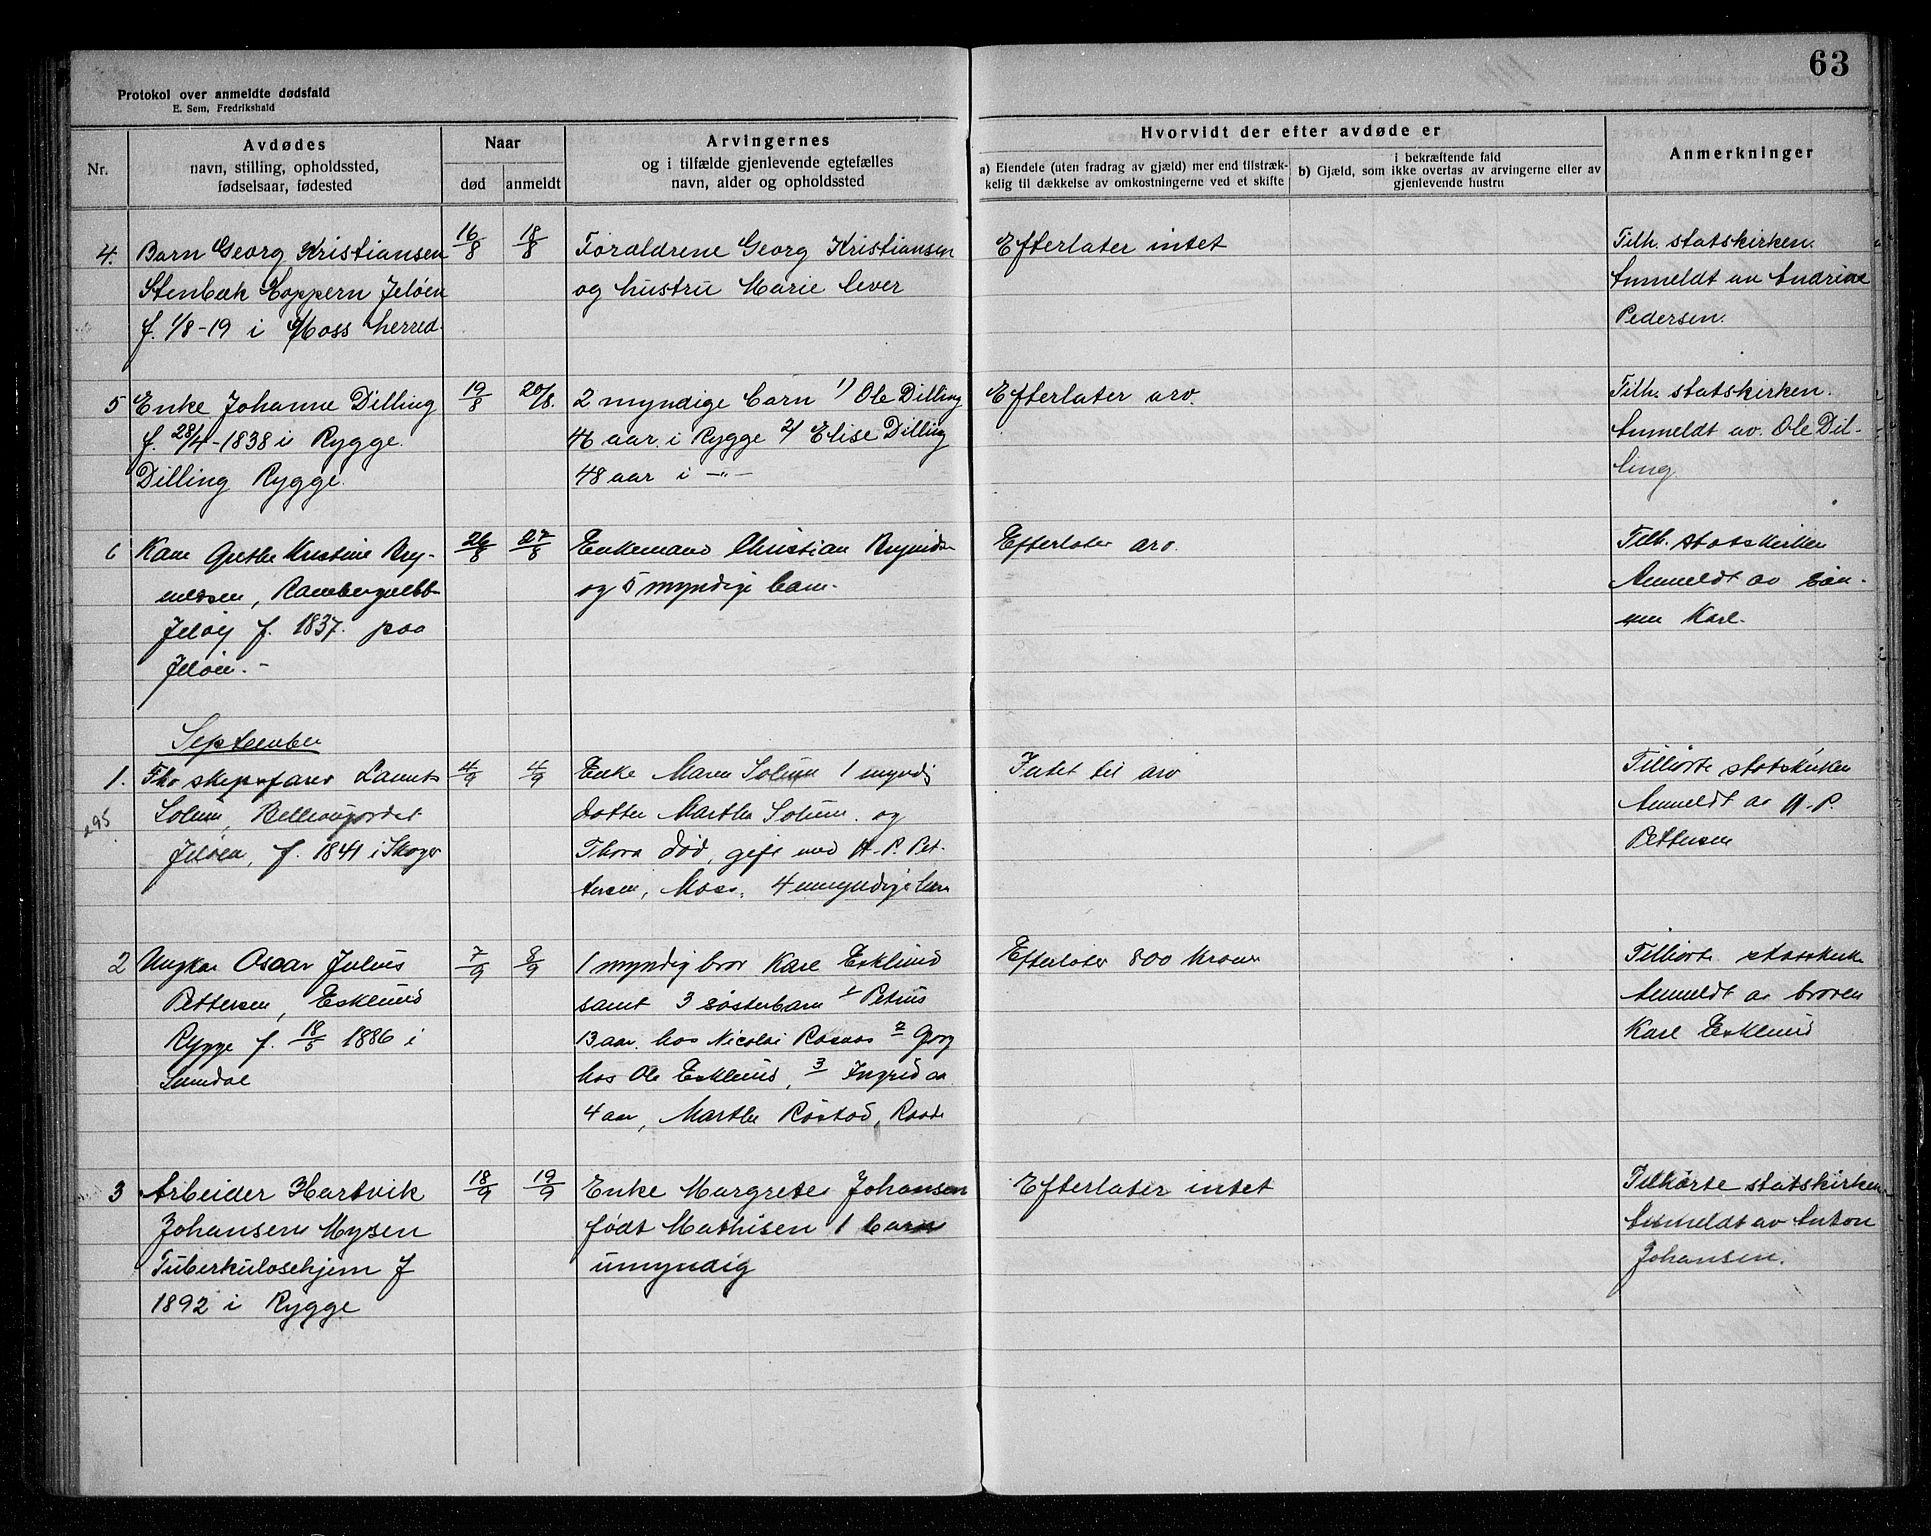 63
Protokol over anmeldte dødsfald
E. Sem, Fredrikshald
Nr.
Avdødes
navn, stilling, opholdssted,
fødselsaar, fødested
Naar
død
anmeldt
Arvingernes
og i tilfælde gjenlevende egtefælles
navn, alder og opholdssted
Hvorvidt der efter avdøde er
a) Eiendele (uten fradrag av gjæld) mer end tilstræk-
kelig til dækkelse av omkostningerne ved et skifte
i bekræftende fald
b) Gjæld, som ikke overtas av arvingerne eller av
gjenlevende hustru
Anmerkninger
4. Barn Georg Kristiansen
Stenbæk Koppern Jeløen
f. 1/8-19 i Moss herred
16/8
18/8
Forældrene Georg Kristiansen
og hustru Marie lever
Efterlater intet
Tilh. statskirken.
Anmeldt av Andrine
Pedersen.
5 Enke Johanne Dilling
f. 28/4-1838 i Rygge.
Dilling Rygge.
19/8
20/8.
2 myndige barn 1) Ole Dilling
46 aar i Rygge 2) Elise Dilling
48 aar i -"-
Efterlater arv.
Tilh. statskirken.
Anmeldt av. Ole Dil-
ling.
6 Kone Grethe Kristine
Jeløy f. 1837. paa
Jeløen.-
26/8
27/8
Enkemand Christian
og 5 myndige barn.
Efterlater arv.
Tilh. statskirken
Anmeldt av søn-
nen Karl.
September
1. Fho skipsfører
Solum,
Jeløen, f. 1841 i Skoger
295
4/9
4/9
Enke Maren Solum 1 myndig
datter Marthe Solum. og
Thora død, gift med H. P. Pet-
tersen, Moss. 4 umyndige barn
Intet til arv
Tilhørte statskirken
Anmeldt av H. P.
Pettersen
2 Ungkar Oscar Julius
Pettersen, Esklund
Rygge f. 18/5 1886 i
7/9
8/9
1 myndig bror Karl Esklund
samt 3 søsterbarn 1 Petrus
13 aar. hos Nicolai 2 Georg
hos Ole Esklund, 3 Ingrid
4 aar, Marthe Røstad, Raade
Efterlater 800 kroner
Tilhørte statskirke
Anmeldt av broren
Karl Esklund
3 Arbeider Hartvik
Johansen Mysen
Tuberkulosehjem f
1892 i Rygge
18/9
19/9
Enke Margrete Johansen
født Mathisen 1 barn
umyndig
Efterlater intet
Tilhørte statskirken
Anmeldt av Anton
Johansen.